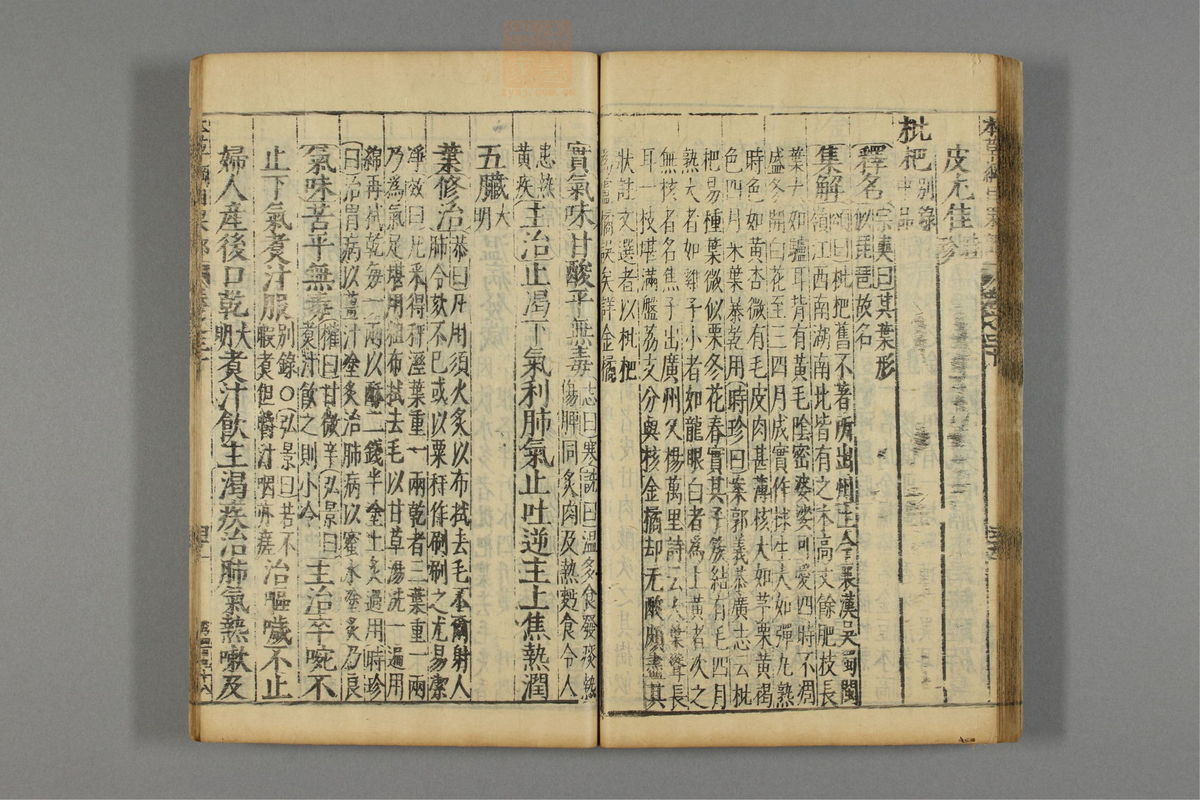 皮尤佳時珍
枇杷別錄中品
釋名宗奭曰其葉形似琵琶故名
集解頌曰枇杷舊不著所出州土今襄漢吳蜀閩
嶺江西南湖南北皆有之木高丈餘肥枝長
葉大如驢耳背有黃毛陰密婆娑可愛四時不凋
盛冬開白花至三四月成實作梂生大如彈丸熟
時色如黃杏微有毛皮肉甚薄核大如茅栗黃褐
色四月采葉暴乾用時珍曰案郭義恭廣志云枇
杷易種葉微似栗冬花春實其子簇結有毛四月
熟大者如雞子小者如龍眼白者為上黃者次之
無核者名焦子出廣州又楊萬里詩云大葉聳長
耳一枝堪滿盤荔支分與核金橘却无酸頗盡其
狀註文選者以枇杷
為盧橘誤矣詳金橘
實氣味甘酸平無毒志曰寒詵曰溫多食發痰熱
傷脾同炙肉及熱麪食令人
患熱黃疾主治止渴下氣利肺氣止吐逆主上焦熱潤
五臟大明
葉修治恭曰凡用須火炙以布拭去毛不爾射人
肺令欬不已或以粟稈作刷刷之尤易潔
凈斅曰凡采得秤溼葉重一兩乾者三葉重一兩
乃為氣足堪用粗布拭去毛以甘草湯洗一遍用
綿再拭乾每一兩以酥二錢半塗上炙過用時珍
曰治胃病以薑汁塗炙治肺病以蜜水塗炙乃良
氣味苦平無毒權曰甘微辛弘景曰
煑汁飲之則小冷主治卒啘不
止下氣煑汁服別錄〇弘景曰若不
暇煑但嚼汁咽亦瘥治嘔噦不止
婦人產後口乾大明煑汁飲主渴疾治肺氣熱嗽及